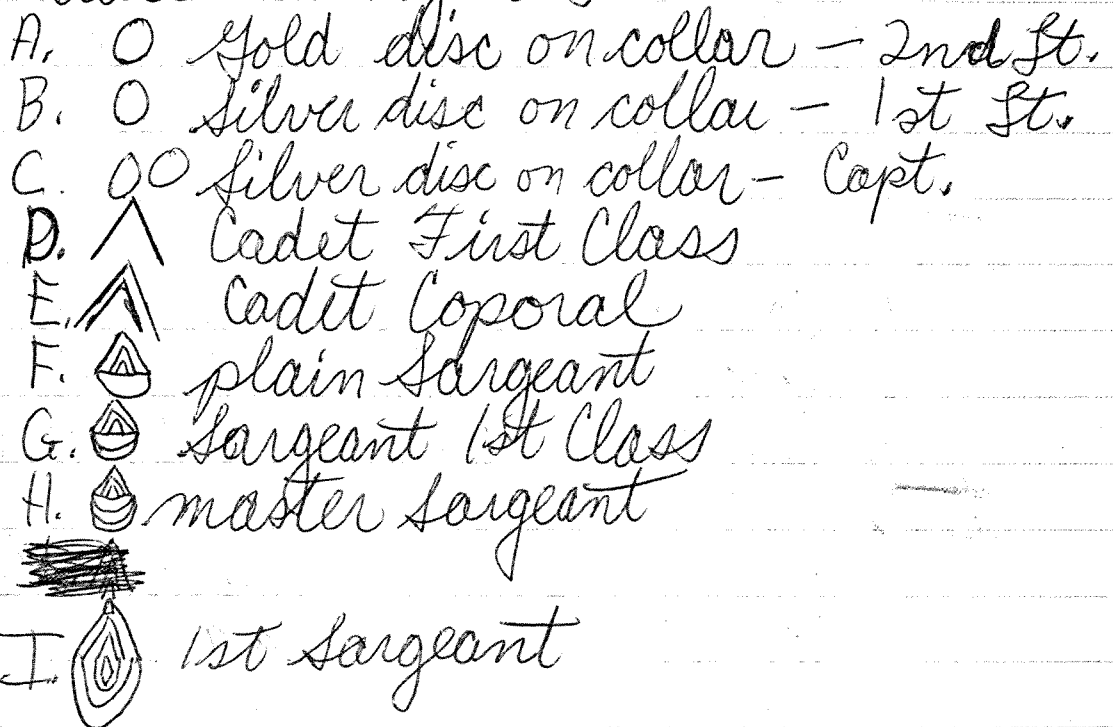 A. Gold disc on collar – 2nd Lt.
B. Silver disc on collar – 1st Lt.
C. Silver disc on collar – Capt.
D. Cadet First Class
E. Cadet Coporal
F. plain Sargeant
G. Sargeant 1st Class
H. master Sargeant
I. 1st Sargeant